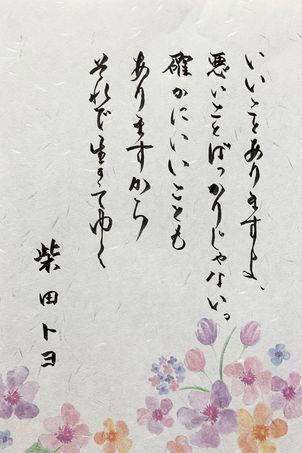 いいことありますよ、
悪いことばっかりじゃない。
確かにいいことも
ありますから
それで生きてゆく
柴田トヨ